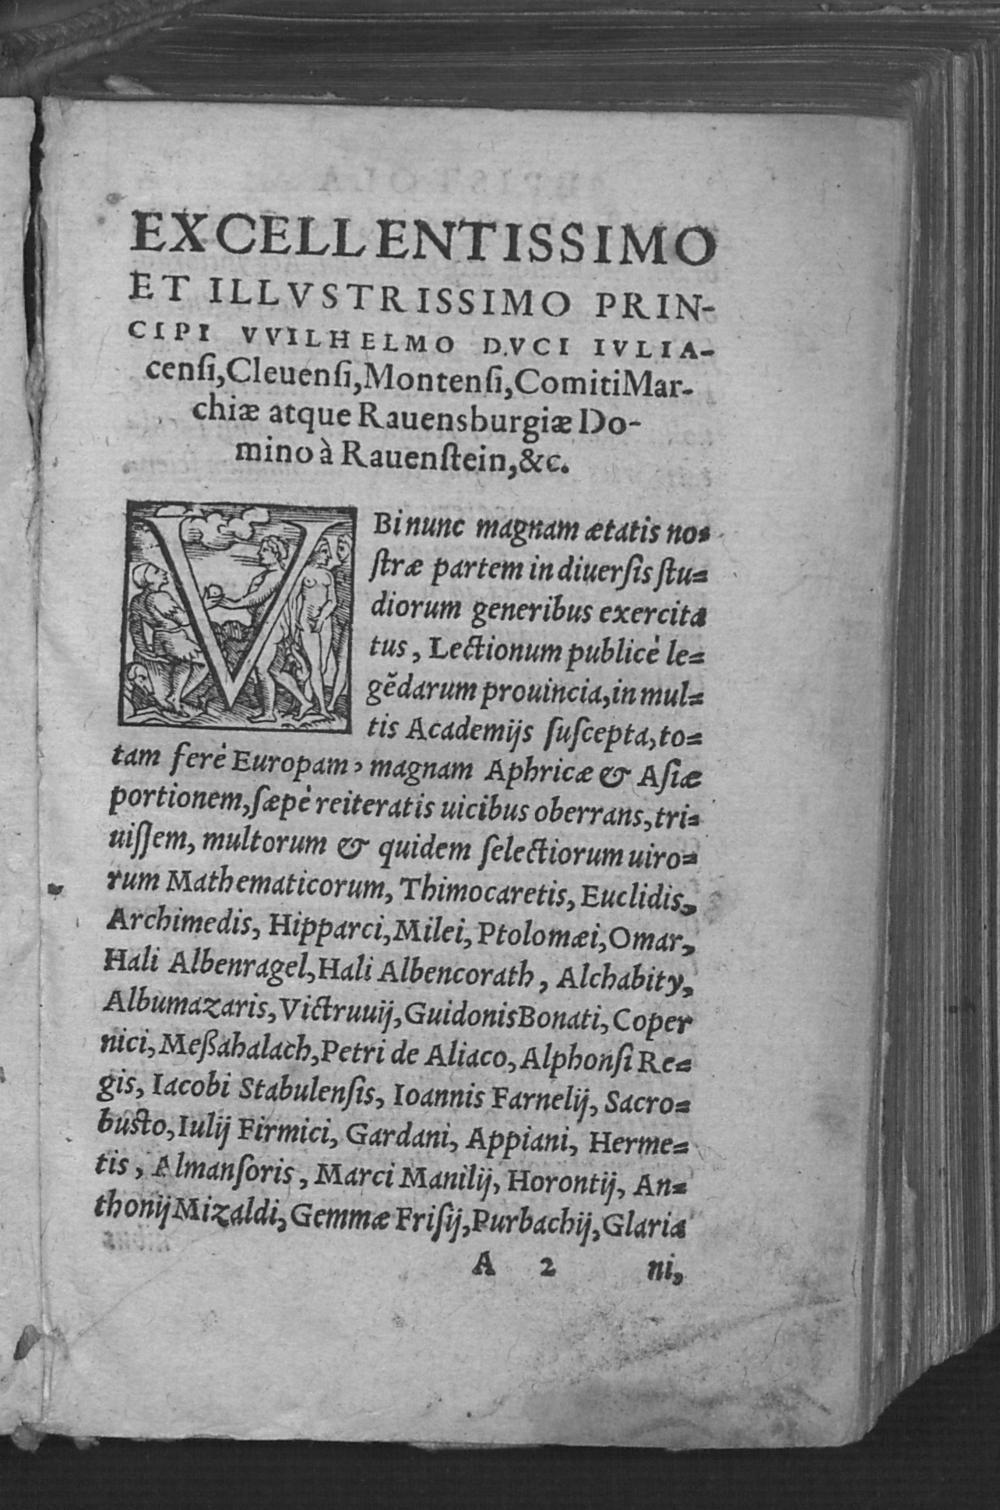 EXCELLENTISSIMO
ET ILLVSTRISSIMO PRIN-
CIPI VVILHELMO DVCI IVLIA-
cenſi, Cleuenſi, Montenſi, Comiti Mar-
chiæ atque Rauensburgiæ Do-
mino à Rauenſtein, &c.
VBi nunc magnam ætatis no-
ſtræ partem in diuerſis ſtu-
diorum generibus exercita
tus, Lectionum publicè le-
gẽdarum prouincia, in mul-
tis Academijs ſuſcepta, to-
tam ferè Europam, magnam Aphricæ & Aſiæ
portionem, ſæpè reiteratis uicibus oberrans, tri-
uiſſem, multorum & quidem ſelectiorum uiro-
rum Mathematicorum, Thimocaretis, Euclidis,
Archimedis, Hipparci, Milei, Ptolomæi, Omar,
Hali Albenragel, Hali Albencorath, Alchabity,
Albumazaris, Victruuij, Guidonis Bonati, Coper
nici, Meßahalach, Petri de Aliaco, Alphonſi Re-
gis, Iacobi Stabulenſis, Ioannis Farnelij, Sacro-
buſto, Iulij Firmici, Gardani, Appiani, Herme-
tis, Almanſoris, Marci Manilij, Horontij, An-
thonij Mizaldi, Gemmæ Friſij, Purbachij, Glaria
A 2 ni,